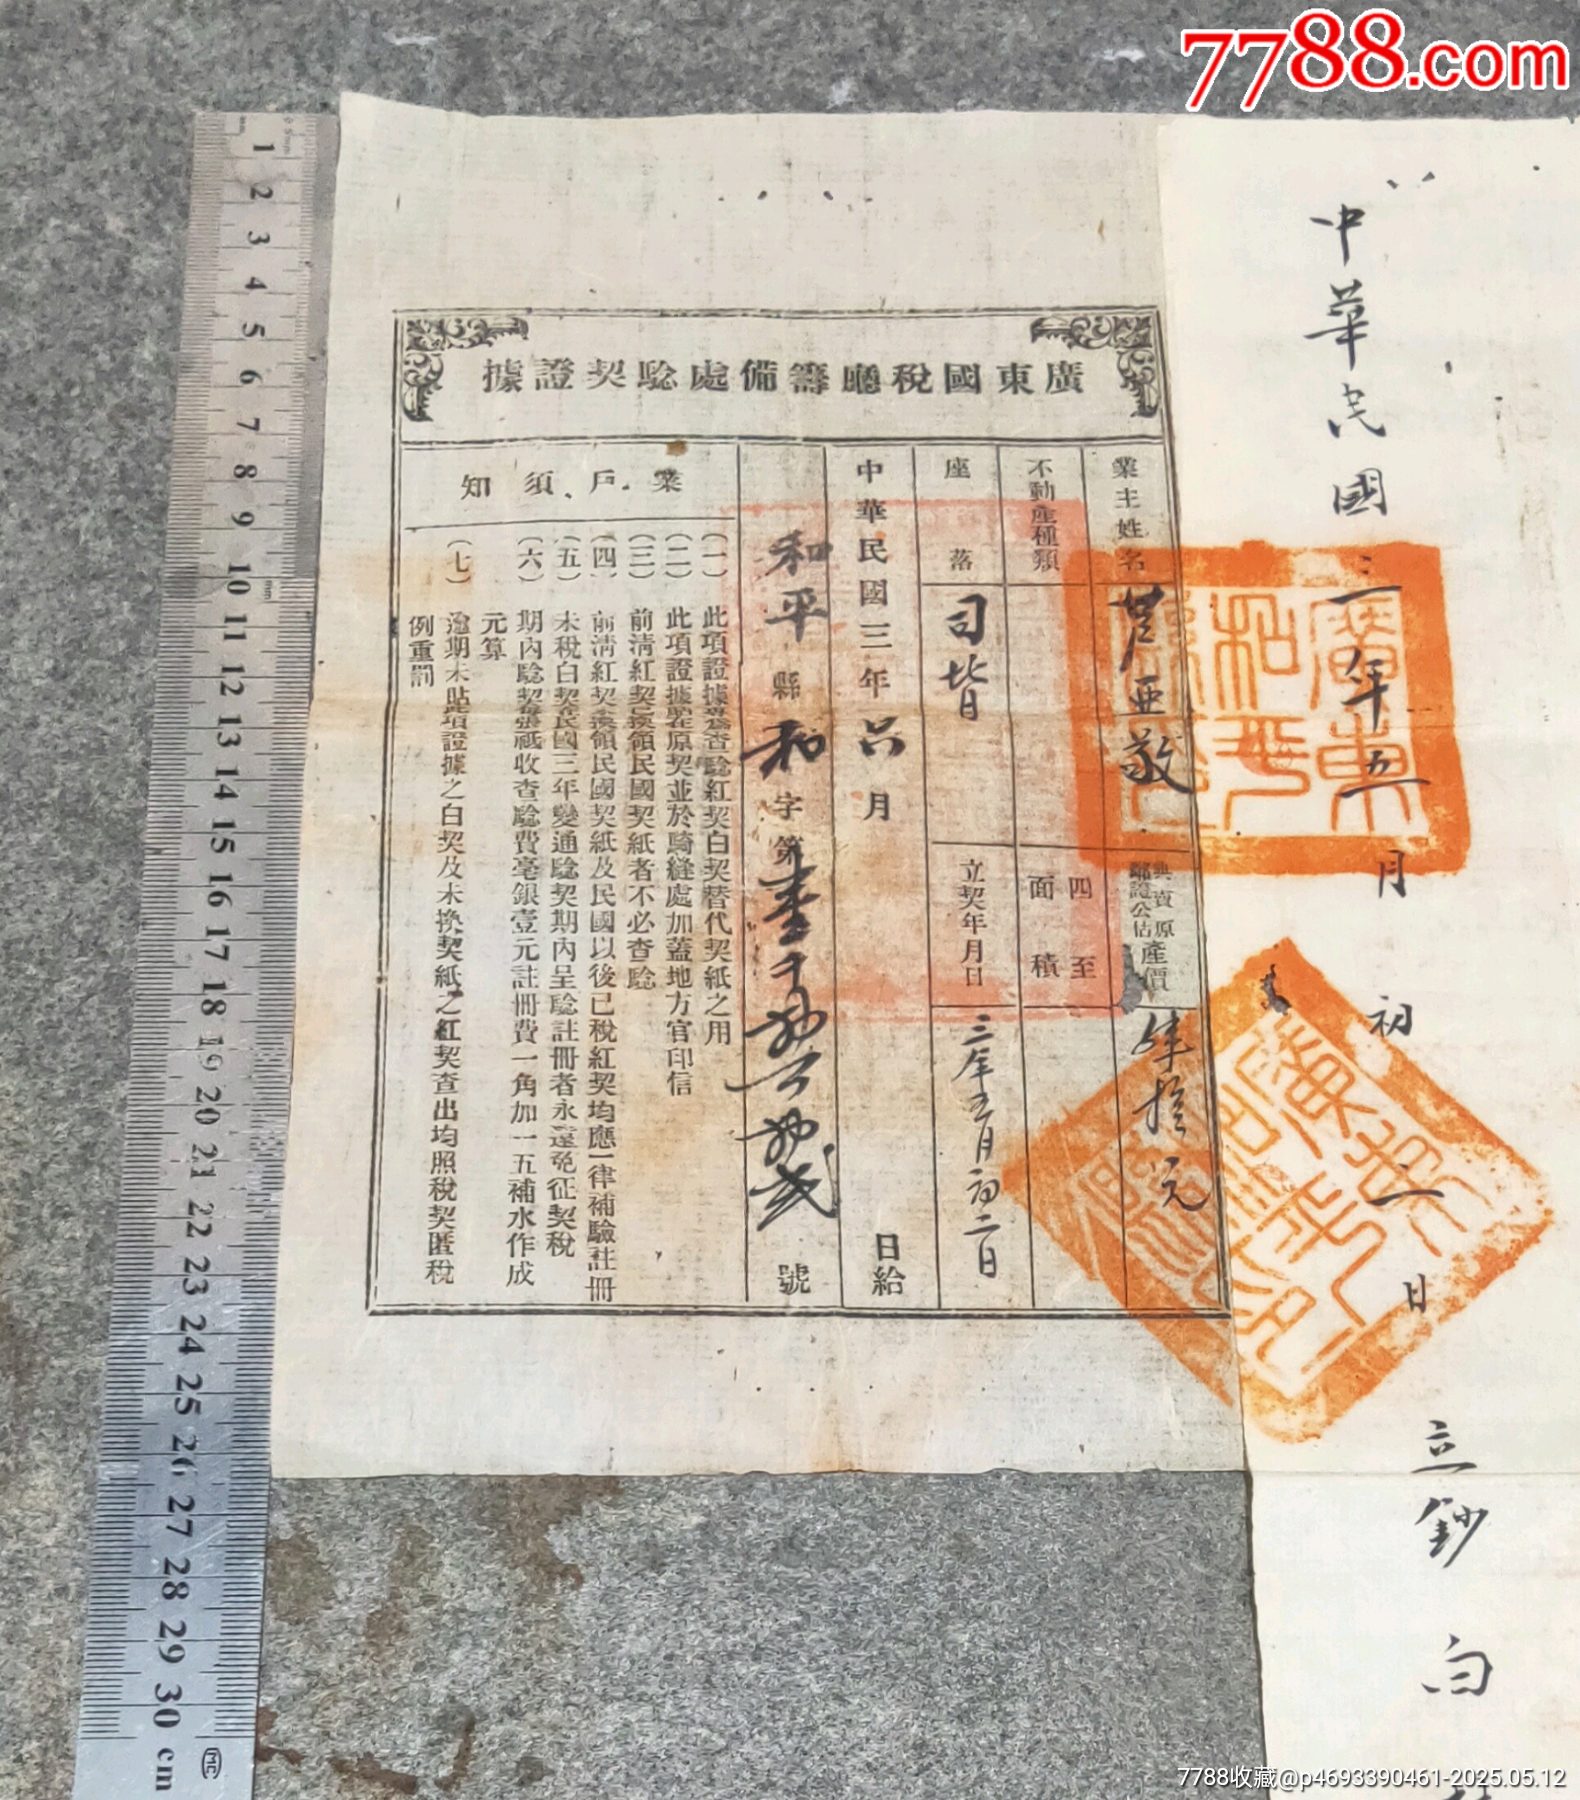 7788.com
廣東國稅廳籌備處驗契證據
業主姓名
亞敬
典賣原產價
鄰證公估
陸拾元
不動產種類
四至
面積
座落
司背
立契年月日
三年五月初二日
中華民國三年六月
日給
和平縣和字第壹千
號
業戶須知
(一)此項證據為查驗紅契白契替代契紙之用
(二)此項證據粘在原契並於騎縫處加蓋地方官印信
(三)前清紅契換領民國契紙者不必查驗
(四)前清紅契換領民國契紙及民國以後已稅紅契均應一律補驗註冊
(五)未稅白契在民國三年變通驗契期內呈驗註冊者永遠免征契稅
(六)期內驗契每張祗收查驗費毫銀壹元註冊費一角加一五補水作成元算
(七)逾期未貼此項證據之白契及未換契紙之紅契查出均照稅契匿稅例重罰
中華民國三年五月初二日 立鈔白
1 2 3 4 5 6 7 8 9 10 11 12 13 14 15 16 17 18 19 20 21 22 23 24 25 26 27 28 29 30 cm
7788收藏@p4693390461-2025.05.12